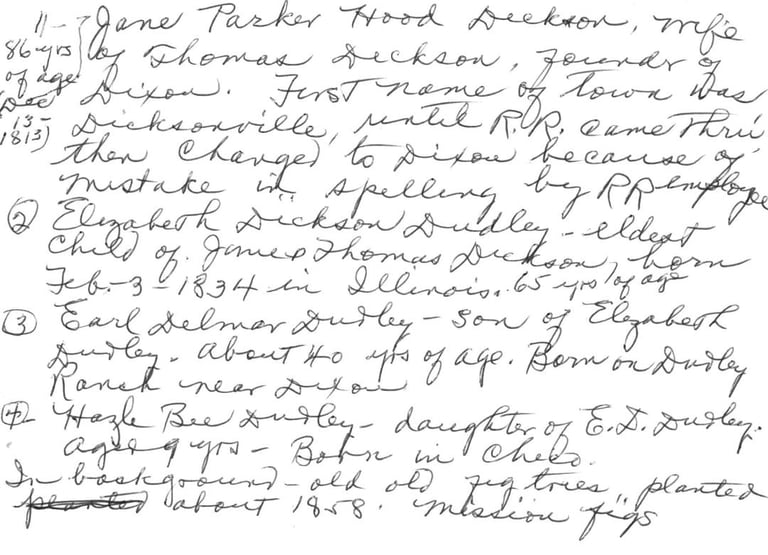 11- Jane Parker Hood Dickson, wife
86 yrs of age of Thomas Dickson, founder of
(Dec 13-1813) Dixon. First name of town was
Dicksonville, until R.R. came thru
then changed to Dixon because of
mistake in spelling by RR employee
② Elizabeth Dickson Dudley - eldest
child of James & Thomas Dickson, born
Feb.-3-1834 in Illinois. 65 yrs of age
③ Earl Delmar Dudley - son of Elezabeth
Dudley. About 40 yrs of age. Born on Dudley
Ranch near Dixon
④ Hazle Bee Dudley - daughter of E.D. Dudley.
aged 9 yrs - Born in Chico.
In background - old old fig trees planted
planted about 1858. "Mission figs"